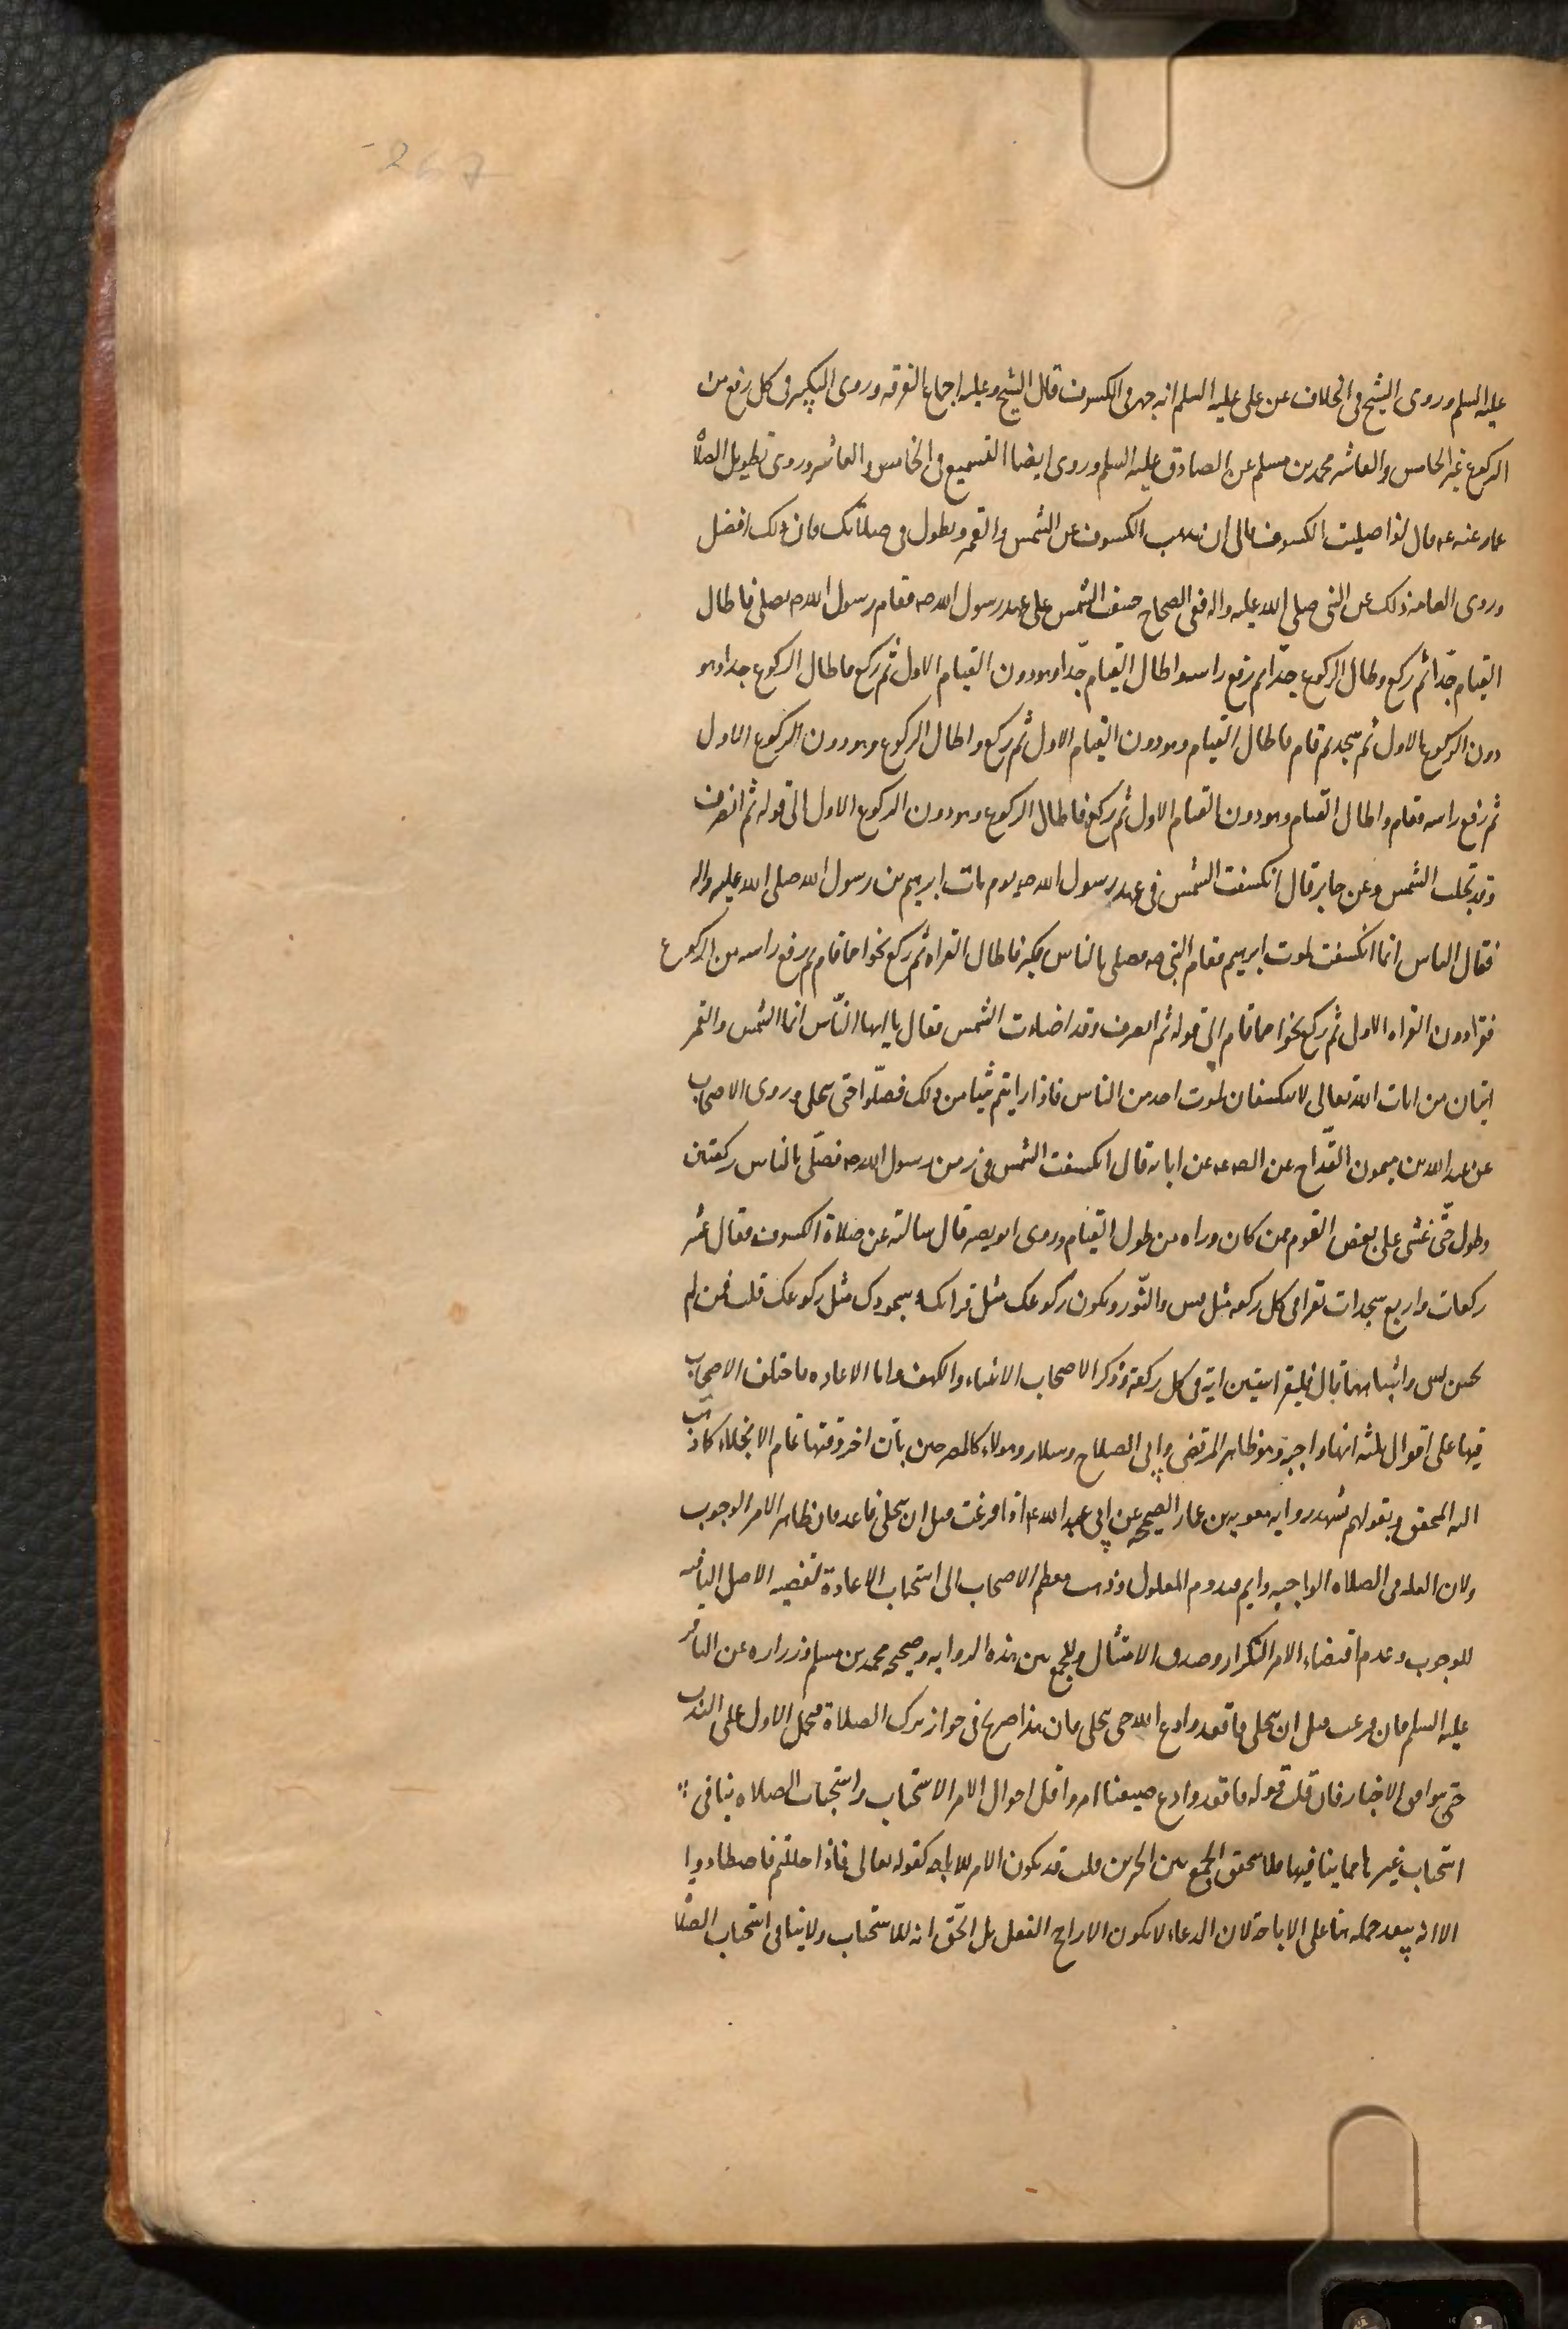 267
عليه السلم وروى الشيخ في الخلاف عن على عليه السلم انه جهر في الكسوف قال الشيخ وعليه اجماع الفرقه وروى التكبير في كل رفع من
الركوع غير الخامس والعاشر محمد بن مسلم عن الصادق عليه السلم وروى ايضا التسميع في الخامس والعاشر وروى تطويل الصلاة
عمار عنه عه قال اذا صليت الكسوف الى ان يذهب الكسوف عن الشمس والقمر وتطول في صلاتك فان ذلك افضل
وروى العامه ذلك عن النبى صلى الله عليه واله ففى الصحاح خسفت الشمس على عهد رسول الله صه فقام رسول الله صه يصلى فاطال
القيام جدّا ثم ركع وطال الركوع جدّا ثم رفع راسه واطال القيام جدّا وهو دون القيام الاول ثم ركع فاطال الركوع جدا وهو
دون الركوع الاول ثم سجد ثم قام فاطال القيام وهو دون القيام الاول ثم ركع واطال الركوع وهو دون الركوع الاول
ثم رفع راسه فقام واطال القيام وهو دون القيام الاول ثم ركع فاطال الركوع وهو دون الركوع الاول الى قوله ثم انصرف
وقد تجلت الشمس وعن جابر قال انكسفت الشمس في عهد رسول الله صه يوم مات ابرهيم بن رسول الله صلى الله عليه واله
فقال الناس انما انكسفت لموت ابرهيم فقام النبى صه فصلى بالناس فكبر فاطال القراه ثم ركع نحوا مما قام ثم رفع راسه من الركوع
فقرا دون القراه الاول ثم ركع نحوا مما قام الى قوله ثم انصرف وقد اضاءت الشمس فقال يا ايها النّاس انما الشمس والقمر
ايتان من ايات الله تعالى لا ينكسفان لموت احد من الناس فاذا رايتم شيا من ذلك فصلّوا حتى تنجلى وروى الاصحاب
عن عبد الله بن ميمون القدّاح عن الصه عه عن ابائه قال انكسفت الشمس في زمن رسول الله صه فصلّى بالناس ركعتين
وطول حتّى غشى على بعض القوم ممن كان وراه من طول القيام وروى ابو بصير قال سالته عن صلاة الكسوف فقال عشر
ركعات واربع سجدات تقرا في كل ركعه مثل يس والنّور ويكون ركوعك مثل قراتك وسجودك مثل ركوعك قلت فمن لم
يحسن يس واشباهها قال فليقرا ستين اية في كل ركعة وذكر الاصحاب الانبياء والكهف واما الاعاده فاختلف الاصحاب
فيها على اقوال ثلثه انها واجبة وهو ظاهر المرتضى وابى الصلاح وسلار وهولاء كالمصرحين بان اخر وقتها تمام الانجلاء كما ذهب
اليه المحقق وبقولهم تشهد روايه معويه بن عمار الصحيحه عن ابى عبد الله عه اذا فرغت قبل ان ينجلى فاعد فان ظاهر الامر الوجوب
ولان العله في الصلاه الواجبه دايم فيدوم المعلول وذهب معظم الاصحاب الى استحباب الاعادة لقضيه الاصل النافيه
للوجوب وعدم اقتضاء الامر التكرار وصدق الامتثال وللجمع بين هذه الروايه وصحيحه محمد بن مسلم وزراره عن الباقر
عليه السلم فان فرغت قبل ان ينجلى فاقعد وادع الله حتى ينجلى فان هذا صريح في جواز ترك الصلاة فيحمل الاول على الندب
توفيقا بين الاخبار فان قلت قوله فاقعد وادع صيغتا امر واقل احوال الامر الاستحباب واستحباب الصلاه ينافى
استحباب غيرها مما ينافيها فلا يتحقق الجمع بين الخبرين قلت قد يكون الامر للاباحه كقوله تعالى فاذا حللتم فاصطادوا
الا انه يبعد حمله هنا على الاباحة لان الدعاء لا يكون الا راجح الفعل بل الحّق انه للاستحباب ولا ينافى استحباب الصلاة